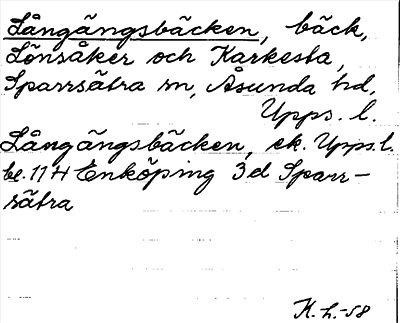 Långängsbäcken, bäck,
Lönsåker och Karkesta,
Sparrsätra sn, Åsunda hd,
Upps. l.
Långängsbäcken, ek. Upps. l.
bl. 11 H Enköping 3d Sparr-
sätra
K. h. -58